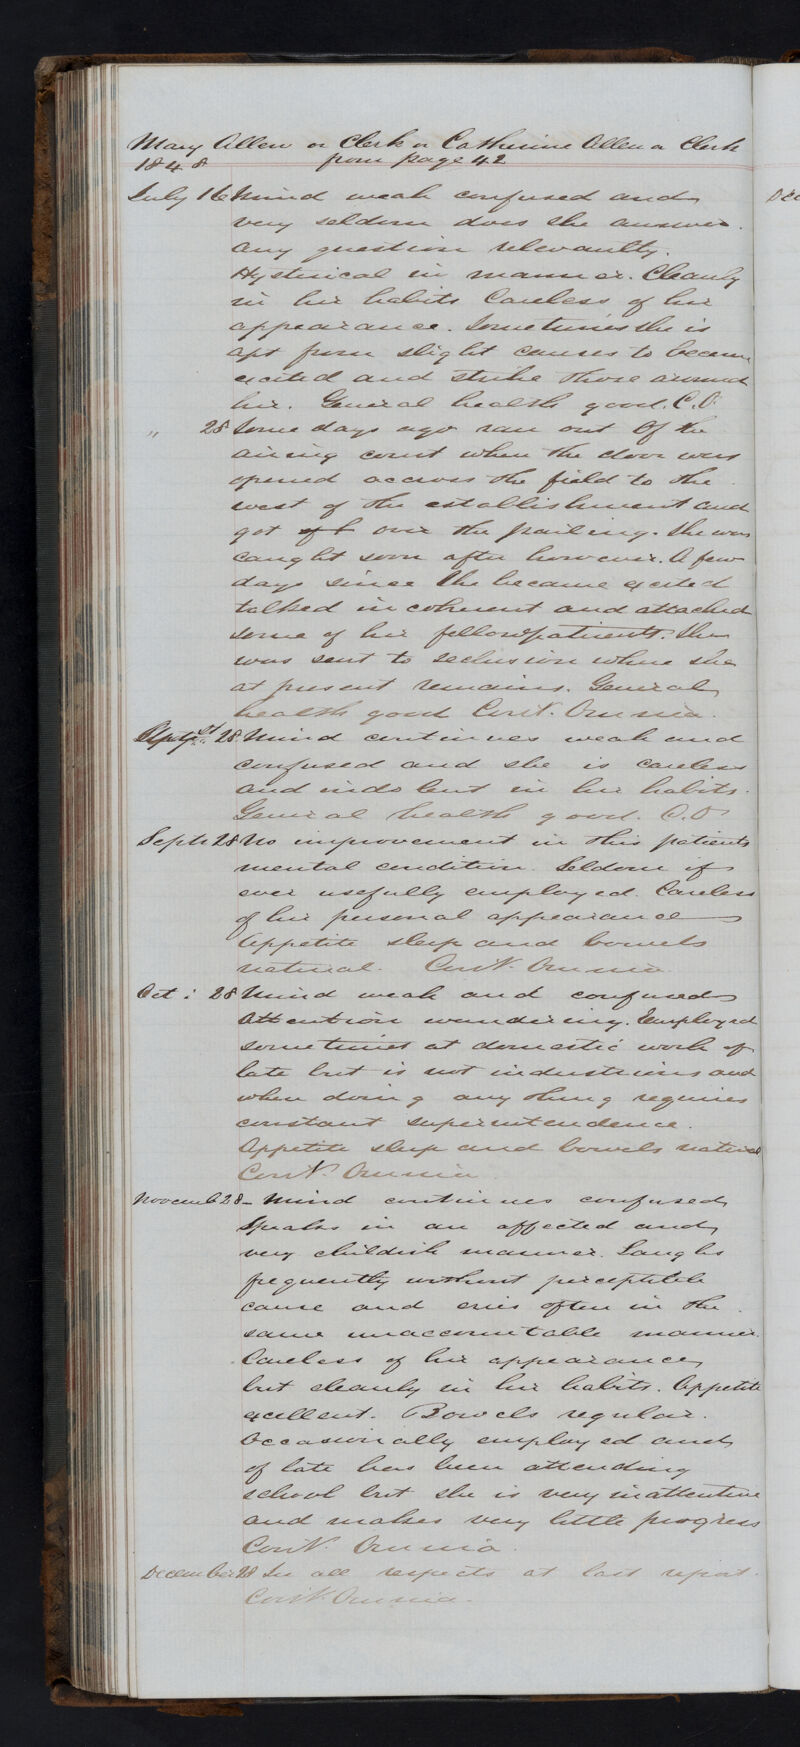 Mary Allen or Clerk or Catherine Allen or Clerk
1848 from page 42
July 16 Mind weak confused and
very seldom does she answer
any question relevantly.
Hysterical in manner. Cleanly
in her habits Careless of her
appearance. Sometimes she is
apt from slight causes to become
excited and strike those around
her. General health good. C.O.
" 28 Some days ago ran out of the
airing court when the door was
opened accross the field to the
west of the establishment and
got over the pailing. She was
caught soon after however. A few
days since she became excited
talked incoherent and attacked
some of her fellow patients. She
was sent to seclusion where she
at present remains. General
health good Cont. Omnia.
28 Mind continues weak and
confused and she is careless
and indolent in her habits.
General health good. C.O.
Septr 28 No improvement in this patients
mental condition. Seldom if
ever usefully employed. Careless
of her personal appearance
Appetite sleep and bowels
natural. Cont. Omnia
Oct : 28 Mind weak and confused
Attention wandering. Employed
sometimes at domestic work of
late but is not industrious and
when doing any thing requires
constant superintendence.
Appetite sleep and bowels natural
Cont. Omnia
Novemb 28 - Mind continues confused
Speaks in an affected and
very childish manner. Laughs
frequently without perceptible
cause and cries often in the
same unaccountable manner.
Careless of her appearance
but cleanly in her habits. Appetite
excellent. Bowels regular.
Occasionally employed and
of late has been attending
school but she is very inattentive
and makes very little progress
Cont. Omnia.
December 28 In all respects at last report.
Cont. Omnia.
Dec